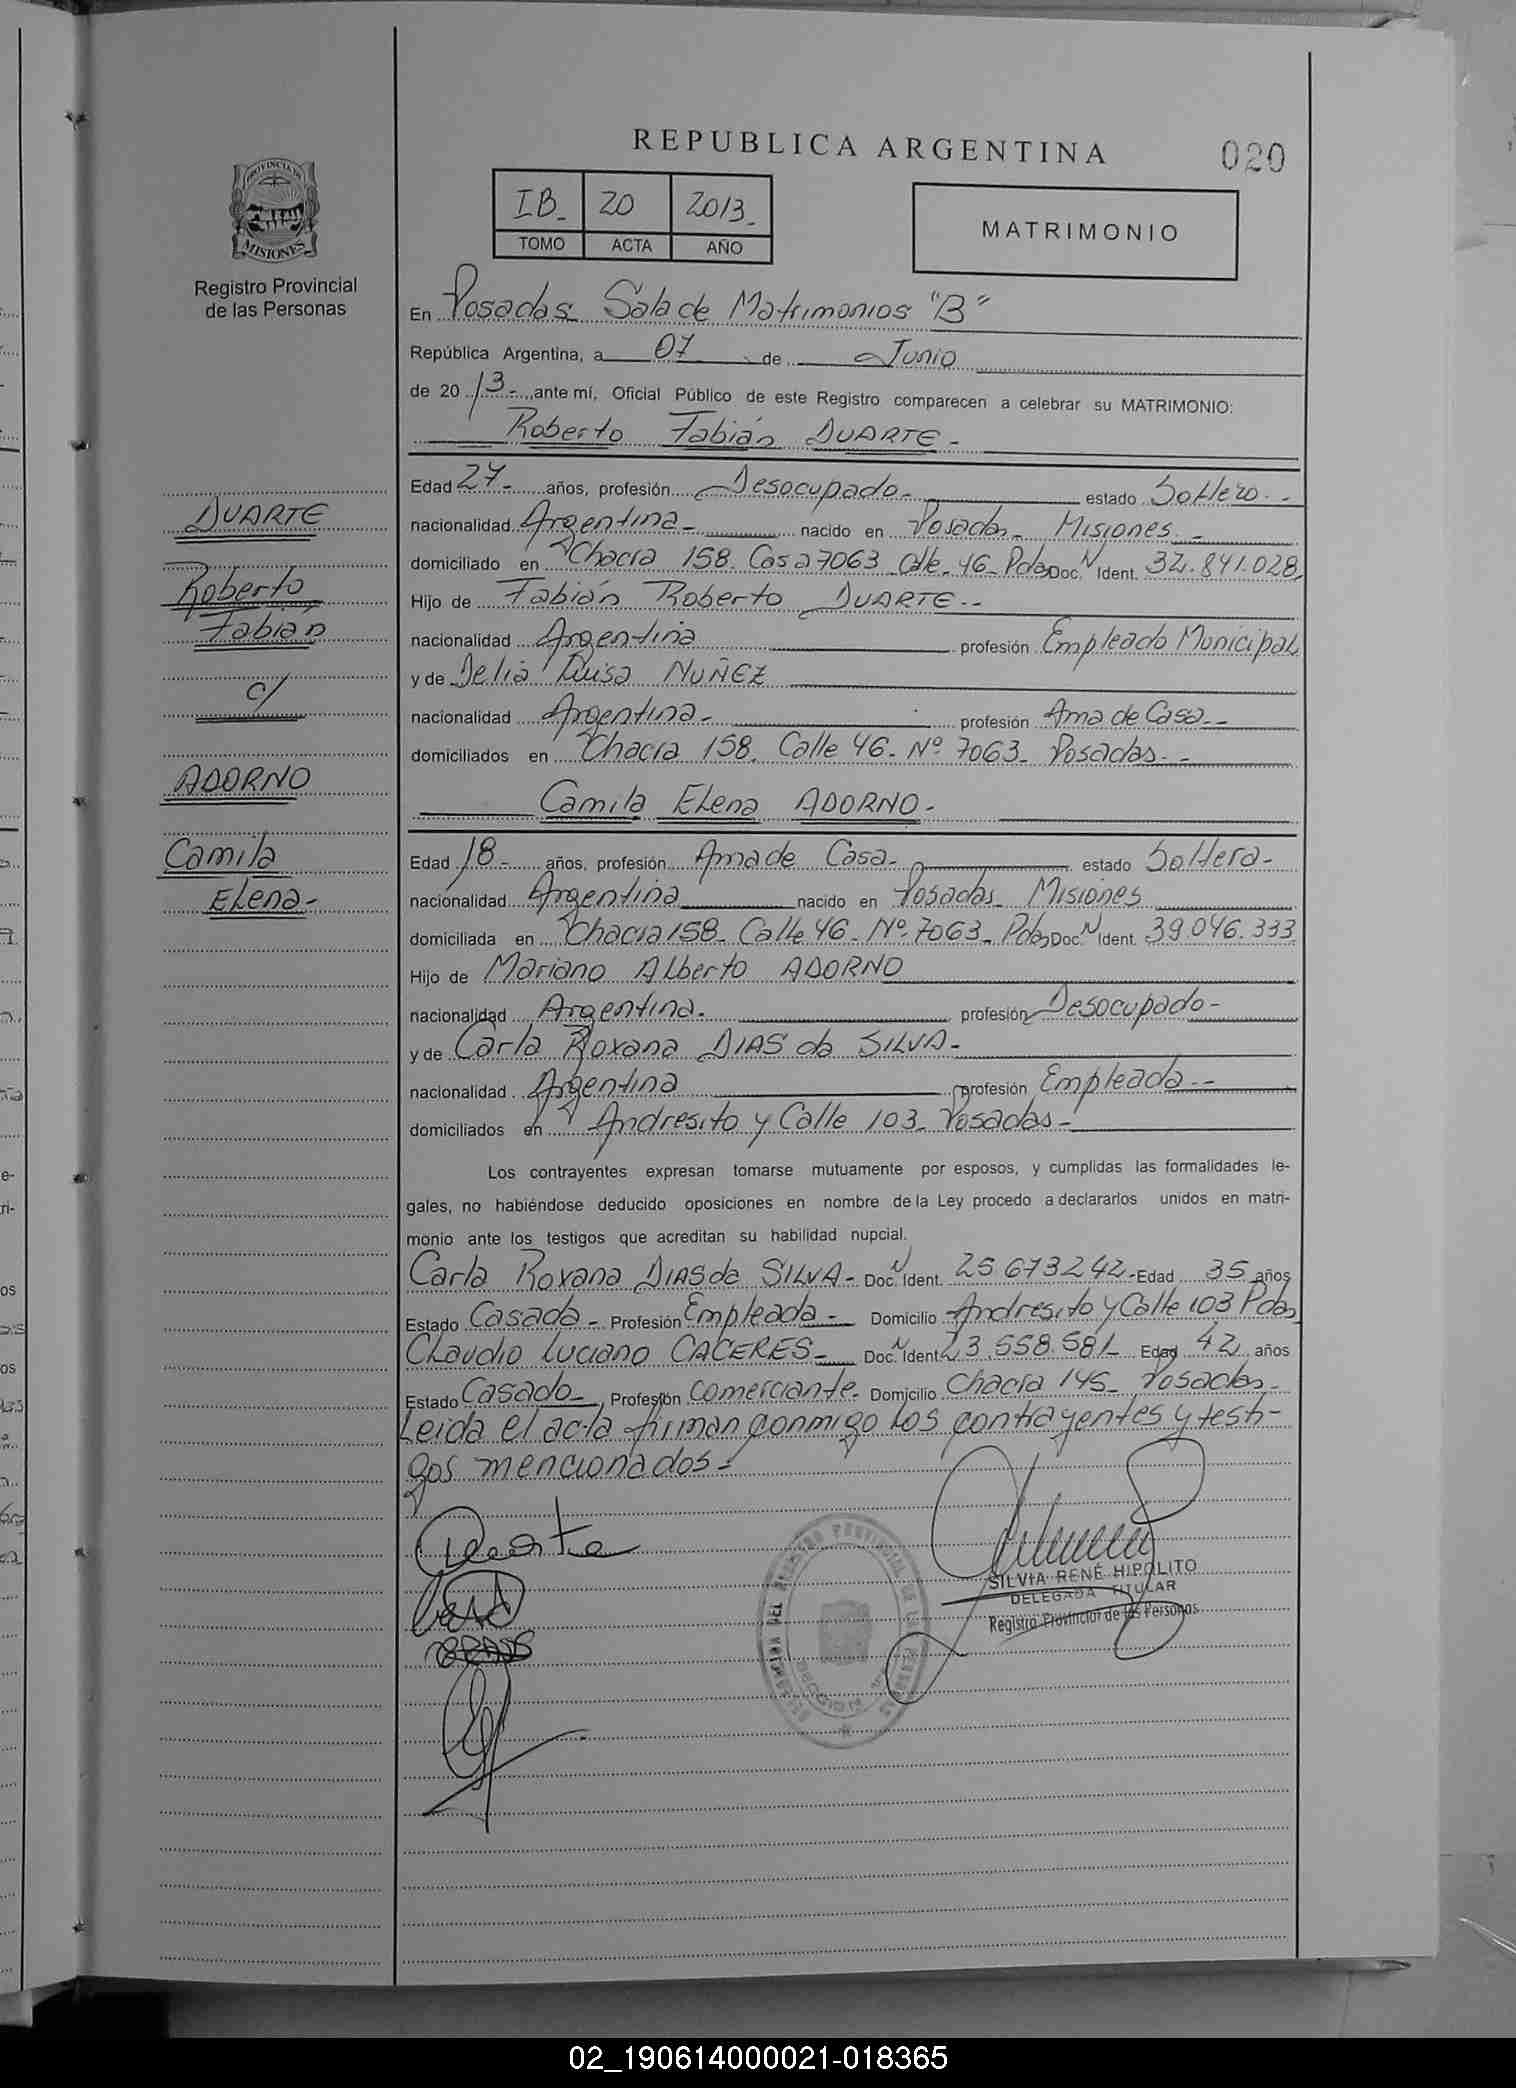 REPUBLICA ARGENTINA
020
PROVINCIA DE
MISIONES
Registro Provincial
de las Personas
IB- 20 2013-
TOMO ACTA AÑO
MATRIMONIO
En Posadas Sala de Matrimonios "B"
República Argentina, a 07 de Junio
de 2013-, ante mí, Oficial Público de este Registro comparecen a celebrar su MATRIMONIO:
Roberto Fabián DUARTE-
Edad 27- años, profesión Desocupado- estado Soltero.-
nacionalidad Argentina- nacido en Posadas- Misiones.-
domiciliado en Chacra 158. Casa 7063 Calle 46- Pdas Doc. N Ident. 32.841.028
Hijo de Fabián Roberto DUARTE.-
nacionalidad Argentina profesión Empleado Municipal
y de Delia Luisa NUÑEZ
nacionalidad Argentina- profesión Ama de Casa.-
domiciliados en Chacra 158. Calle 46- Nº 7063- Posadas.-
Camila Elena ADORNO-
Edad 18- años, profesión Ama de Casa- estado Soltera-
nacionalidad Argentina nacido en Posadas- Misiones
domiciliada en Chacra 158- Calle 46- Nº 7063- Pdas Doc. N Ident. 39.046.333
Hijo de Mariano Alberto ADORNO
nacionalidad Argentina. profesión Desocupado-
y de Carla Roxana DIAS da SILVA-
nacionalidad Argentina profesión Empleada.-
domiciliados en Andresito y Calle 103- Posadas-
Los contrayentes expresan tomarse mutuamente por esposos, y cumplidas las formalidades le-
gales, no habiéndose deducido oposiciones en nombre de la Ley procedo a declararlos unidos en matri-
monio ante los testigos que acreditan su habilidad nupcial.
Carla Roxana DIAS da SILVA- Doc. N Ident. 25 673242- Edad 35 años
Estado Casada- Profesión Empleada- Domicilio Andresito y Calle 103 Pdas
Claudio Luciano CACERES- Doc. N Ident. 23.558.581- Edad 42 años
Estado Casado- Profesión Comerciante. Domicilio Chacra 145- Posadas-
Leida el acta firman conmigo los contrayentes y testi-
gos mencionados-
DUARTE
Roberto
Fabián
c/
ADORNO
Camila
Elena-
Duarte
SILVIA RENÉ HIPOLITO
DELEGADA TITULAR
Registro Provincial de las Personas
02_190614000021-018365